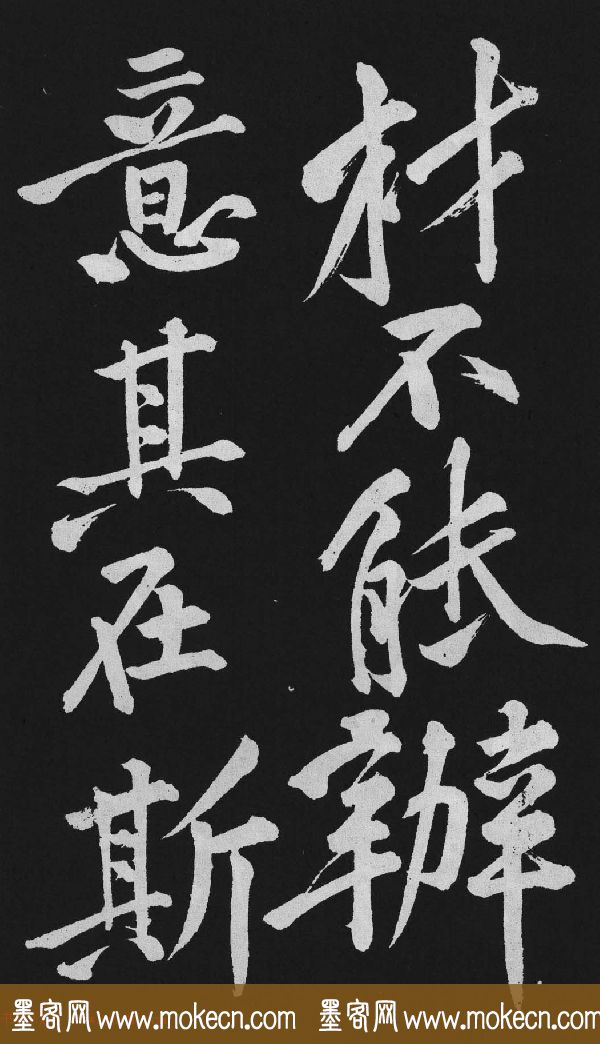 材不能辦
意其在斯
墨客网 www.mokecn.com 墨客网 www.mokecn.com